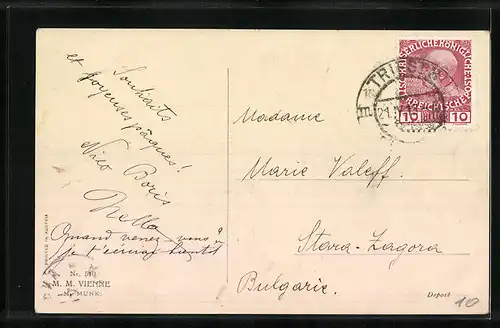 Souhaits
et joyeuses pâques!
Nico Boris
Nella
Quand venez-vous?
Je t'écrirai bientôt
PRINTED IN AUSTRIA
Nr. 510
M. M. VIENNE
M. MUNK.
KAISERLICHE KÖNIGLICHE
ÖSTERREICHISCHE POST
10 10
TRIEST
21
Madame
Marie Valeff.
Stara-Zagora
Bulgarie.
Deposé
10